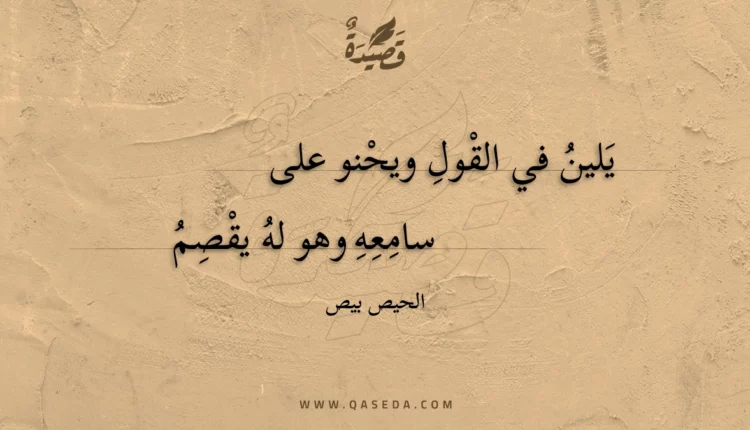 قَصِيدَةٌ
يَلينُ في القْولِ ويحْنو على
سامِعِهِ وهو لهُ يقْصِمُ
الحيص بيص
WWW.QASEDA.COM